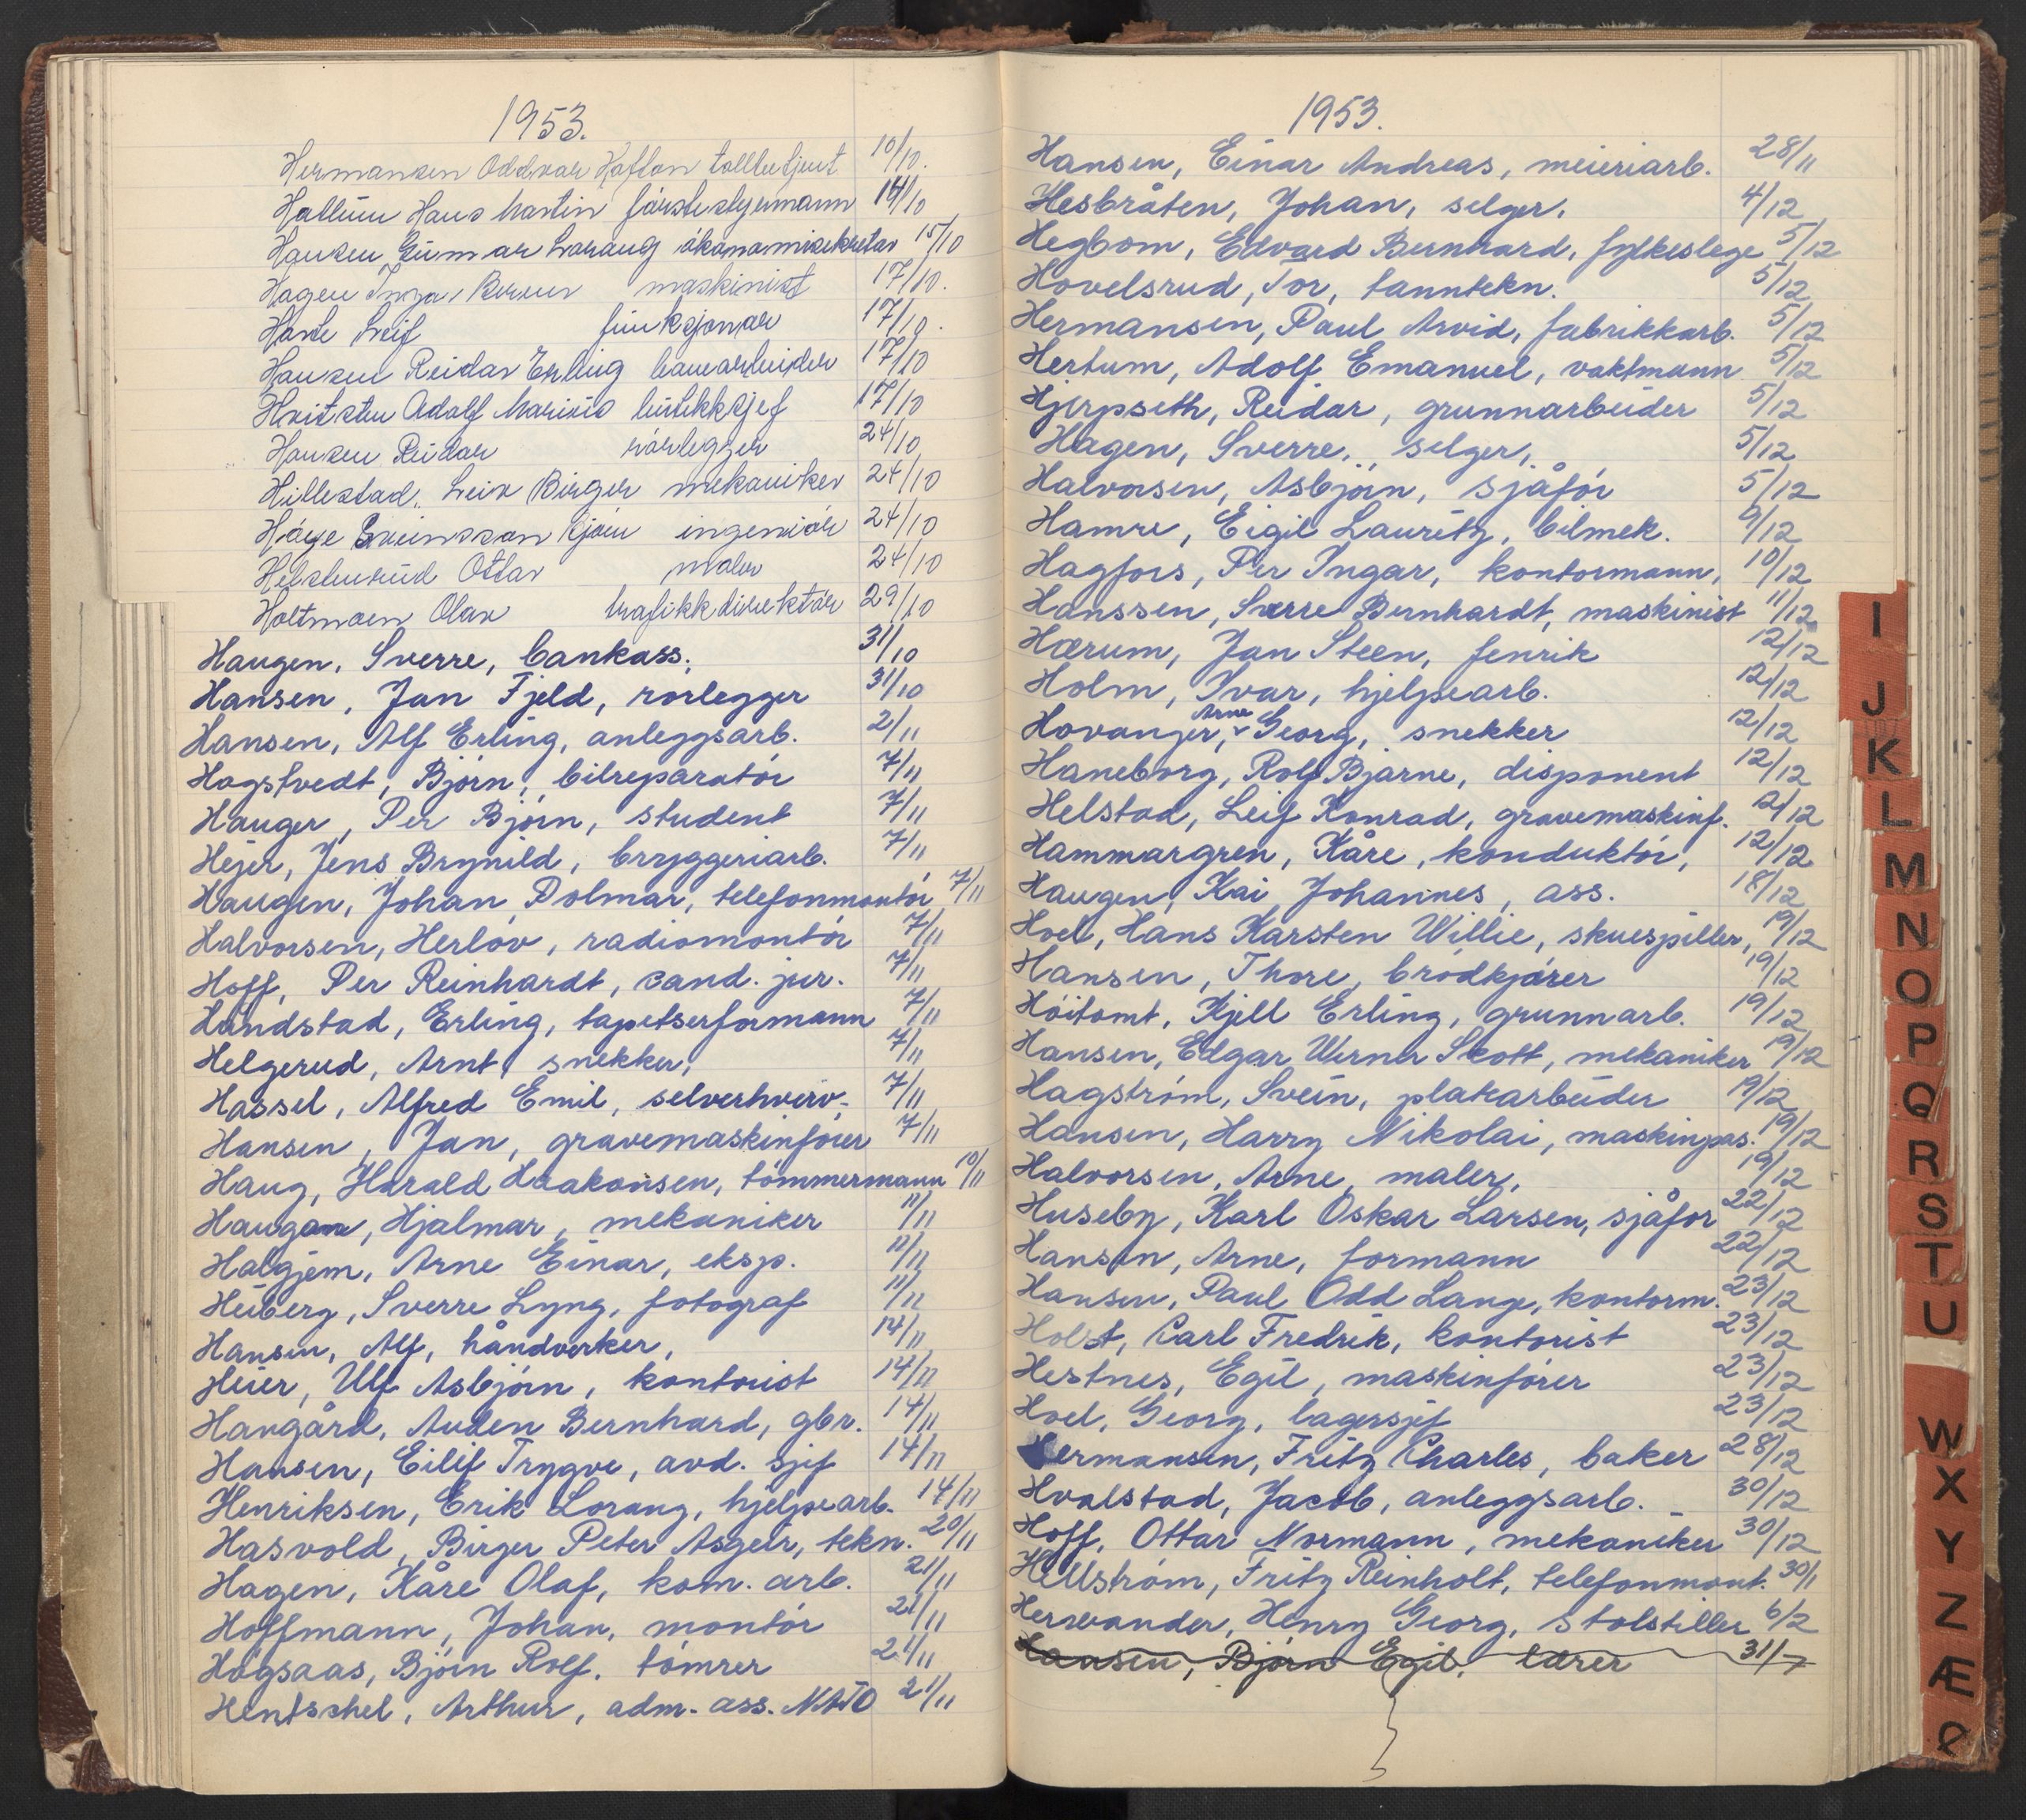 1953.
Hermansen Oddvar Haflan tollbetjent 10/10.
Hallum Hans Martin førstestyrmann 14/10
Hansen Gunnar Lorang økonomisekretær 15/10
Hagen Ingar Berner maskinist 17/10.
Leif funksjonær 17/10.
Hansen Reidar Erling havearbeider 17/10
Hvitsten Adolf Marinius butikksjef 17/10
Hansen Reidar rørlegger 24/10
Hillestad, Leiv Birger mekaniker 24/10
Høye Sveinsson Bjørn ingeniør 24/10
Helstenrud Ottar maler 24/10
Holtmoen Olav trafikkdirektør 29/10
Haugen, Sverre, bankass. 31/10
Hansen, Jan Fjeld, rørlegger 31/10
Hansen, Alf Erling, anleggsarb. 2/11
Hogstvedt, Bjørn, bilreparatør 7/11
Hauger, Per Bjørn, student 7/11
Hejer, Jens Brynild, bryggeriarb. 7/11
Haugen, Johan Polmar, telefonmontør 7/11
Halvorsen, Herlov, radiomontør 7/11
Hoff, Per Reinhardt, cand. jur. 7/11
Hundstad, Erling, tapetserformann 7/11
Helgerud, Arnt, snekker, 7/11
Hassel, Alfred Emil, selverhverv. 7/11
Hansen, Jan, gravemaskinfører 7/11
Haug, Harald Haakonsen, tømmermann 10/11
Haugan, Hjalmar, mekaniker 11/11
Halgjem, Arne Einar, eksp. 11/11
Heiberg, Sverre Lyng, fotograf 11/11
Hansen, Alf, håndverker, 14/11
Heier, Ulf Asbjørn, kontorist 14/11
Haugård, Auden Bernhard, gbr. 14/11
Hansen, Eilif Trygve, avd. sjef 14/11
Henriksen, Erik Lorang, hjelpearb. 14/11
Hasvold, Birger Peter Asgeir, tekn. 20/11
Hagen, Kåre Olaf, kom. arb. 21/11
Hoffmann, Johan, montør 21/11
Høgsaas, Bjørn Rolf, tømrer 21/11
Hentschel, Arthur, adm. ass. NATO 21/11
1953.
Hansen, Einar Andreas, meieriarb. 28/11
Hesbråten, Johan, selger. 4/12
Hegbom, Edvard Bernhard, fylkeslege 5/12
Hovelsrud, Tor, tanntekn. 5/12
Hermansen, Paul Arvid, fabrikkarb. 5/12
Hertum, Adolf Emanuel, vaktmann 5/12
Hjerpseth, Reidar, grunnarbeider 5/12
Hagen, Sverre, selger, 5/12
Halvorsen, Asbjørn, sjåfør 5/12
Hamre, Eigil Lauritz, bilmek. 9/12
Hagfors, Per Ingar, kontormann, 10/12
Hanssen, Sverre Bernhardt, maskinist 11/12
Hærum, Jan Steen, fenrik 12/12
Holm, Ivar, hjelpearb. 12/12
Hovanger, Arne Georg, snekker 12/12
Haneborg, Rolf Bjarne, disponent 12/12
Helstad, Leif Konrad, gravemaskinf. 12/12
Hammargren, Kåre, konduktør, 12/12
Haugen, Kai Johannes, ass. 18/12
Hoel, Hans Karsten Willie, skuespiller, 19/12
Hansen, Thore, brødkjører 19/12
Høitomt, Kjell Erling, grunnarb. 19/12
Hansen, Edgar Werner Skott, mekaniker 19/12
Hagstrøm, Svein, platearbeider 19/12
Hansen, Harry Nikolai, maskinpas. 19/12
Halvorsen, Arne, maler, 19/12
Huseby, Karl Oskar Larsen, sjåfør 22/12
Hansen, Arne, formann 22/12
Hansen, Paul Odd Lange, kontorm. 23/12
Holst, Carl Fredrik, kontorist 23/12
Hestnes, Egil, maskinfører 23/12
Hoel, Georg, lagersjef 23/12
Hermansen, Fritz Charles, baker 28/12
Hvalstad, Jacob, anleggsarb. 30/12
Hoff, Ottar Normann, mekaniker 30/12
Hellstrøm, Fritz Reinholt, telefonmont. 30/1
Herwander, Henry Georg, stolstiller 6/2
Hansen, Bjørn Egil, lærer 31/7
I
J
K
L
M
N
O
P
Q
R
S
T
U
W
X
Y
Z
Æ